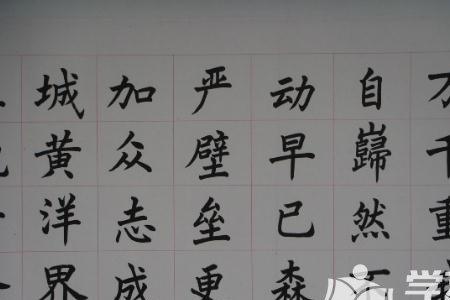 万千重
自巋然不
动早已森
严壁垒更
加众志成
城黄洋界